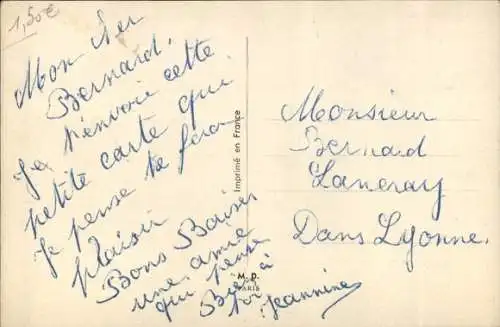 1,50€
Mon cher
Bernard,
Je t'envoie cette
petite carte qui
je pense te fera
plaisir
Bons Baisers
une amie
qui pense
Bien à
toi Jeannine
Imprimé en France
M. D.
PARIS
Monsieur
Bernard
Laneray
Dans Lyonne.